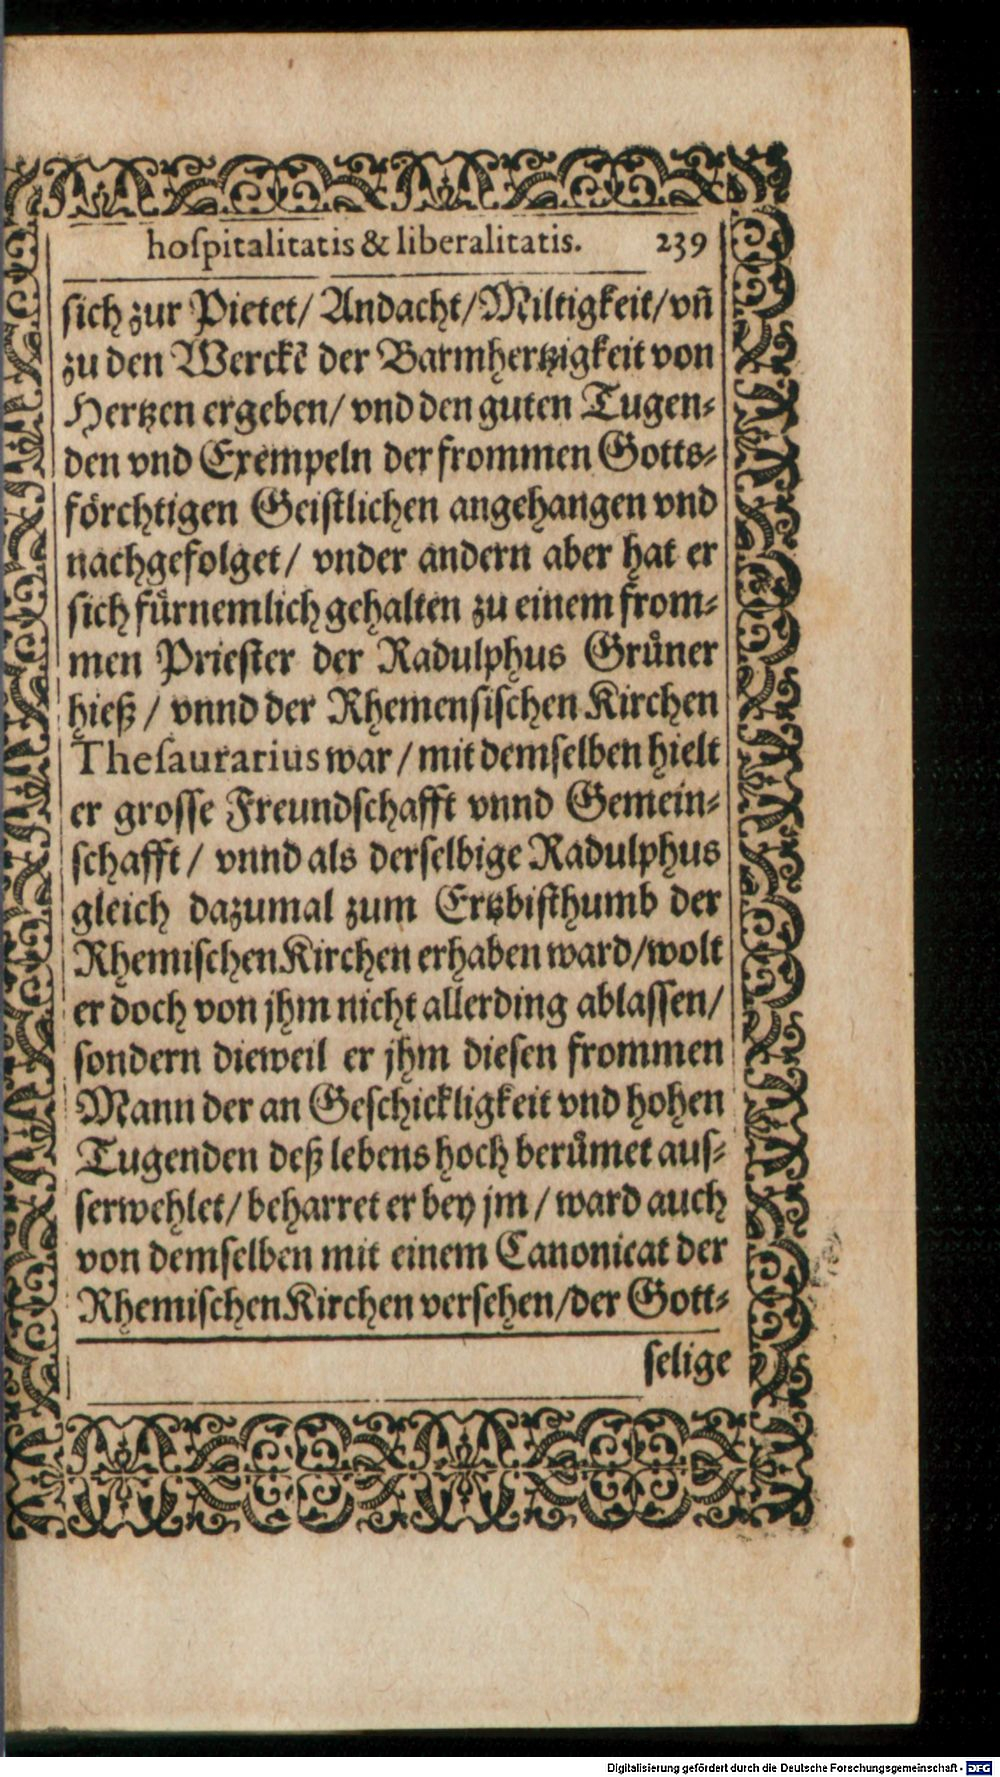 hoſpitalitatis & liberalitatis. 239
ſich zur Pietet/ Andacht/ Miltigkeit/ vñ
zu den Werckē der Barmhertzigkeit von
Hertzen ergeben/ vnd den guten Tugen⸗
den vnd Exempeln der frommen Gotts⸗
förchtigen Geiſtlichen angehangen vnd
nachgefolget/ vnder andern aber hat er
ſich fürnemlich gehalten zu einem from⸗
men Prieſter der Radulphus Grůner
hieß / vnnd der Rhemenſiſchen Kirchen
Theſaurarius war / mit demſelben hielt
er groſſe Freundſchafft vnnd Gemein⸗
ſchafft / vnnd als derſelbige Radulphus
gleich dazumal zum Ertzbiſthumb der
Rhemiſchen Kirchen erhaben ward/ wolt
er doch von jhm nicht allerding ablaſſen/
ſondern dieweil er jhm dieſen frommen
Mann der an Geſchickligkeit vnd hohen
Tugenden deß lebens hoch berůmet auſ⸗
ſerwehlet/ beharret er bey jm / ward auch
von demſelben mit einem Canonicat der
Rhemiſchen Kirchen verſehen/ der Gott⸗
ſelige
Digitalisierung gefördert durch die Deutsche Forschungsgemeinschaft - DFG